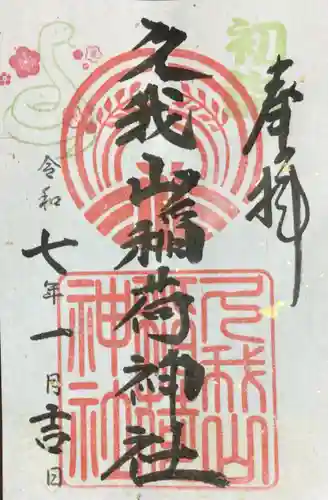 奉拝
初詣
久我山稲荷神社
久我山
稲荷
神社
令和七年一月吉日